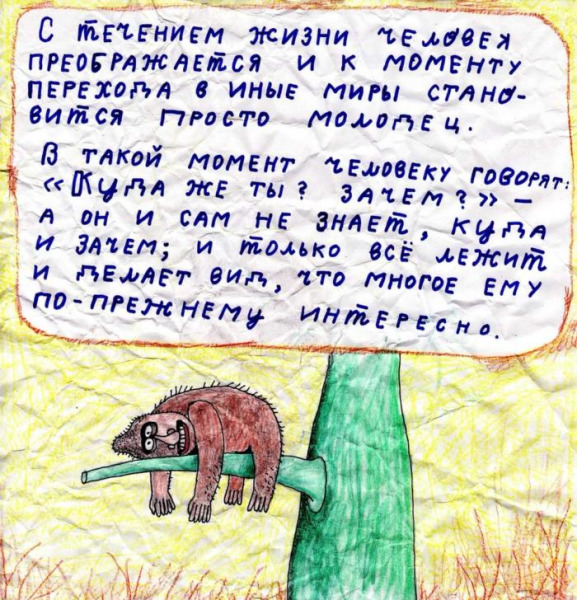 С течением жизни человек
преображается и к моменту
перехода в иные миры стано-
вится просто молодец.
В такой момент человеку говорят:
«Куда же ты? Зачем?» –
а он и сам не знает, куда
и зачем; и только всё лежит
и делает вид, что многое ему
по-прежнему интересно.